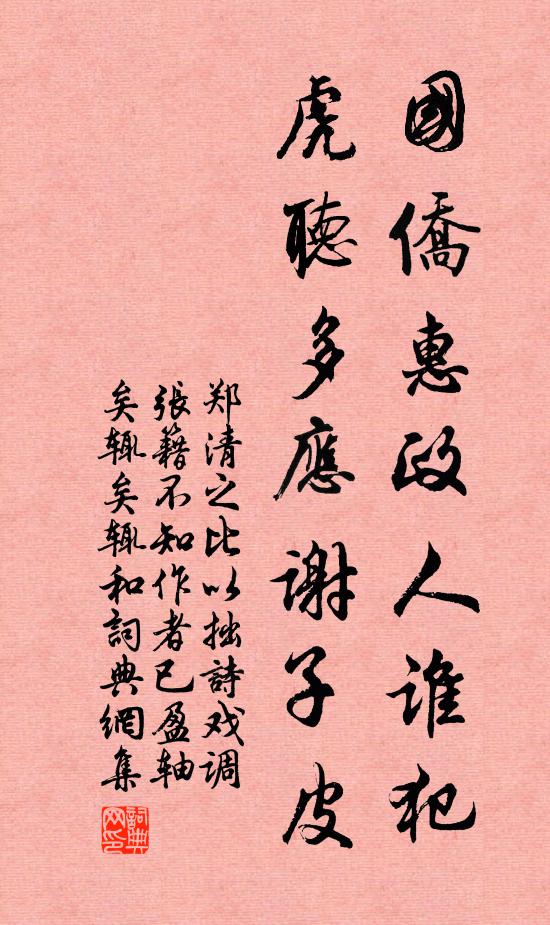 國僑惠政人誰犯
虎聽多應謝子皮
郑清之比以拙詩戏调
張籍不知作者已盈轴
矣辄矣辄和詞典網集
詞典
网印